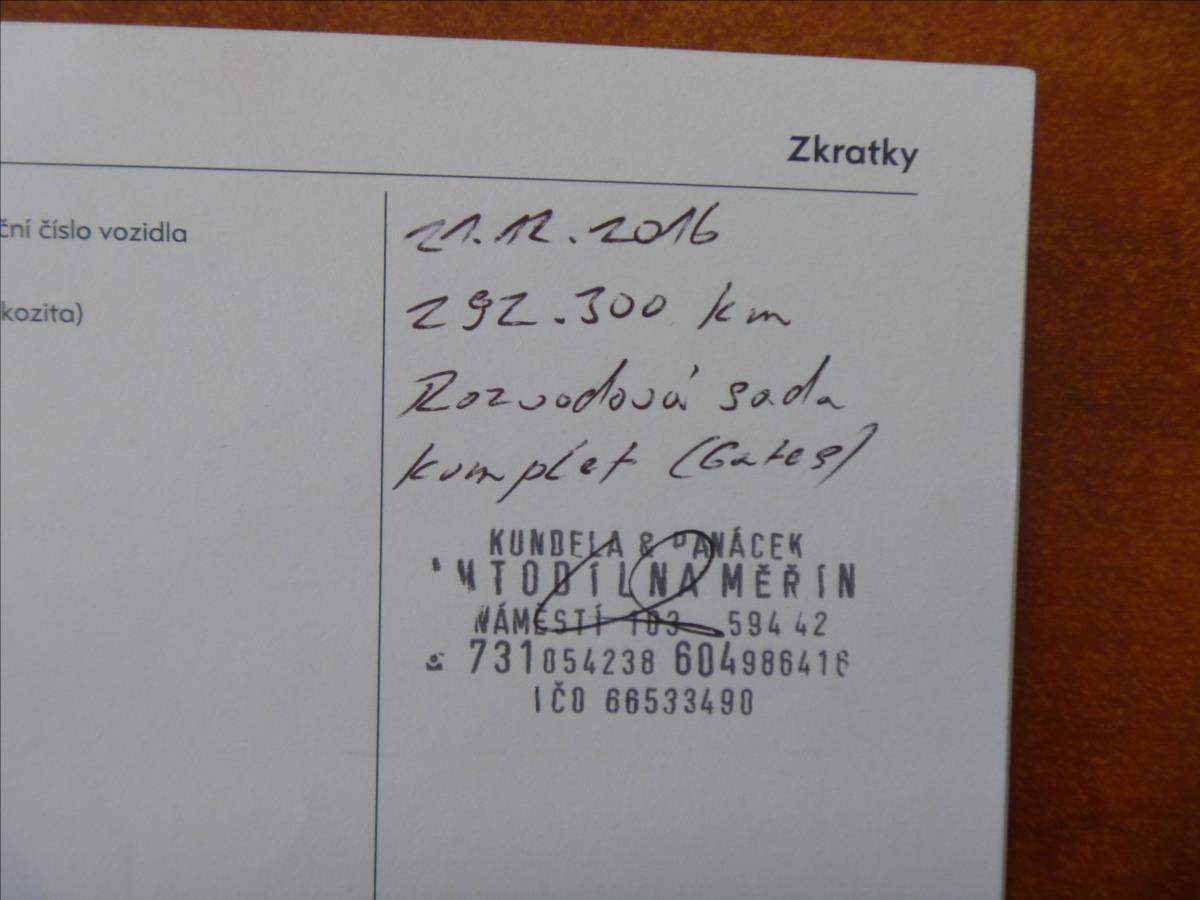 Zkratky
ční číslo vozidla
kozita)
21.12.2016
292.300 km
Rozvodová sada
komplet (Gates)
KUNDELA & PANÁCEK
MĚŘÍN
NÁMĚSTÍ 103 594 42
731054238 604986416
IČO 66533490